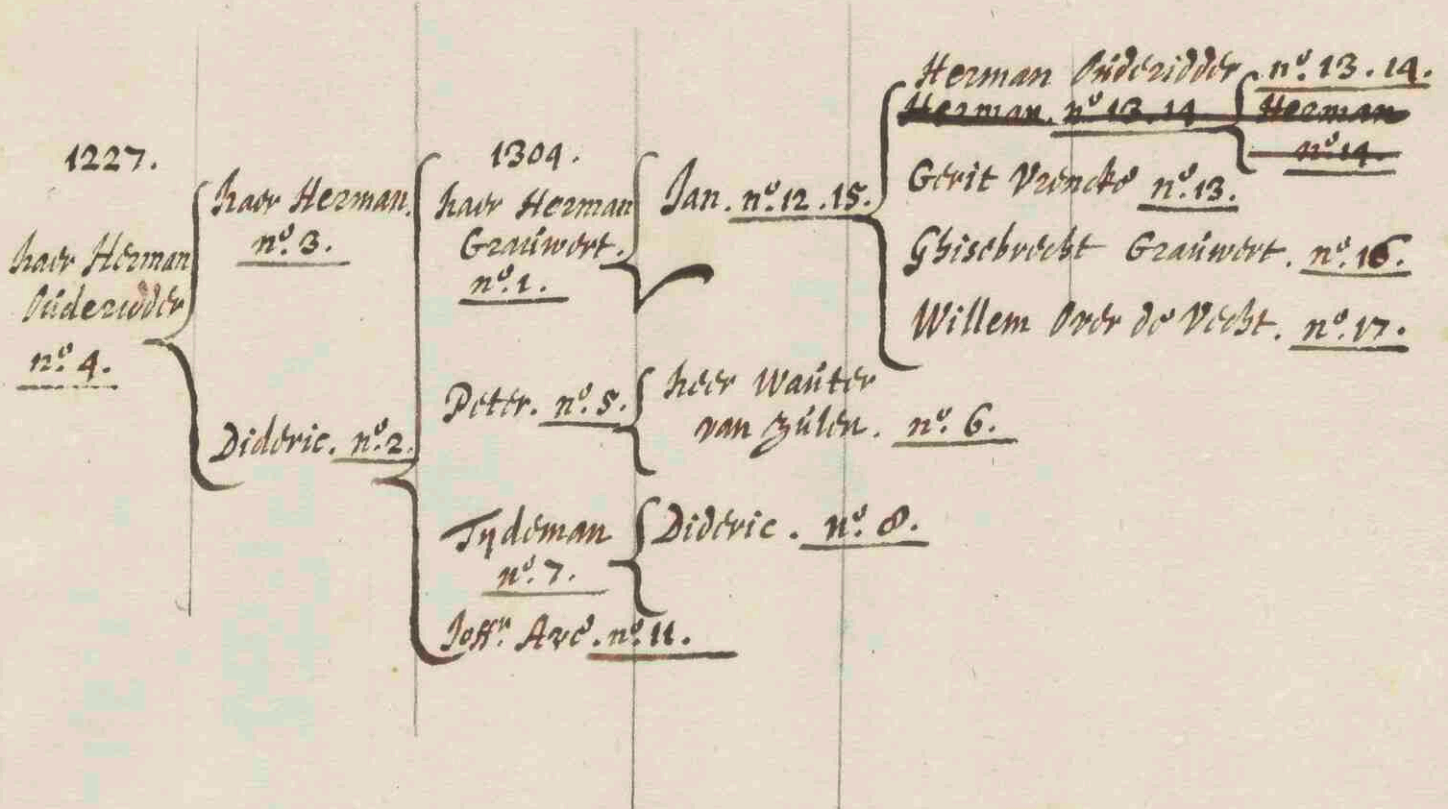 1227.
haer Herman
Oũderidder
nº. 4.
haer Herman.
nº. 3.
Dideric. nº. 2.
1304.
haer Herman
Graũwert.
nº. 1.
Peter. nº. 5.
Tydeman
nº. 7.
Joffr. Ave. nº. 11.
Jan. nº. 12. 15.
heer Waũter
van Zũlen. nº. 6.
Dideric. nº. 8.
Herman Oũderidder nº. 13. 14.
Herman. nº 13. 14 Herman
nº 14.
Gerit Vrencke nº. 13.
Ghisebrecht Graũwert. nº. 16.
Willem Over de Vecht. nº. 17.